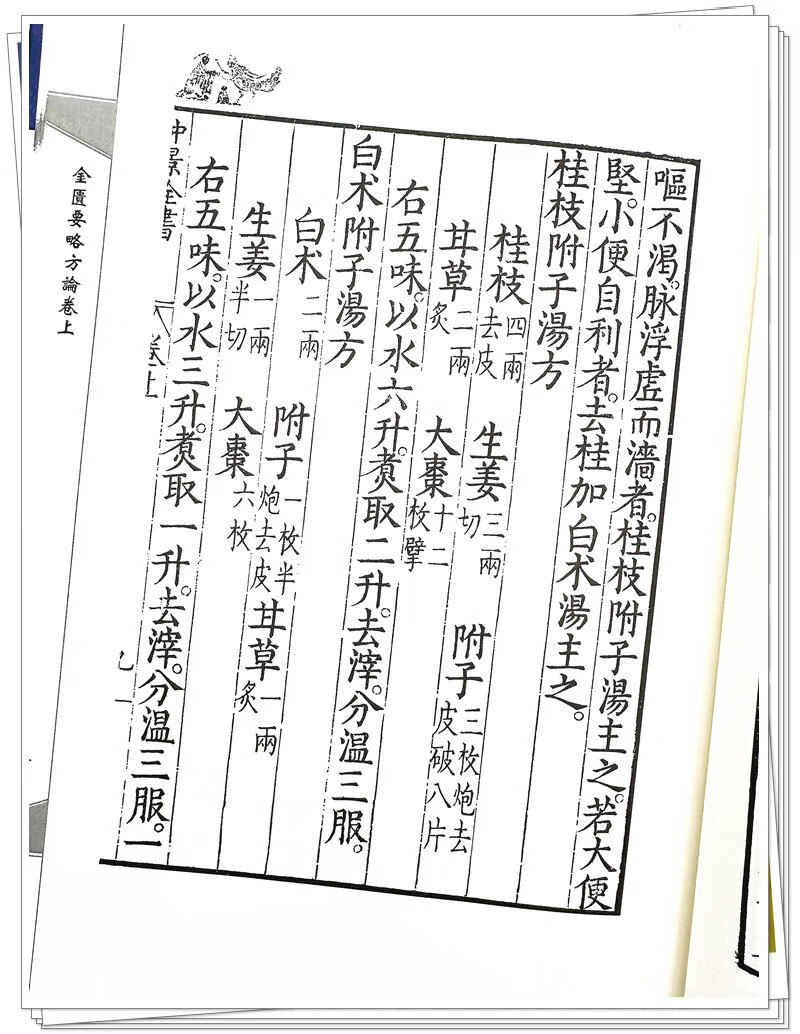 嘔不渴。脉浮虛而濇者。桂枝附子湯主之。若大便
堅。小便自利者。去桂加白朮湯主之。
桂枝附子湯方
桂枝四兩去皮 生姜三兩切 附子三枚炮去皮破八片
甘草二兩炙 大棗十二枚擘
右五味。以水六升。煑取二升。去滓。分温三服。
白朮附子湯方
白朮二兩 附子一枚半炮去皮 甘草一兩炙
生姜一兩半切 大棗六枚
右五味。以水三升。煑取一升。去滓。分温三服。一
仲景全書 卷上
金匱要略方論卷上